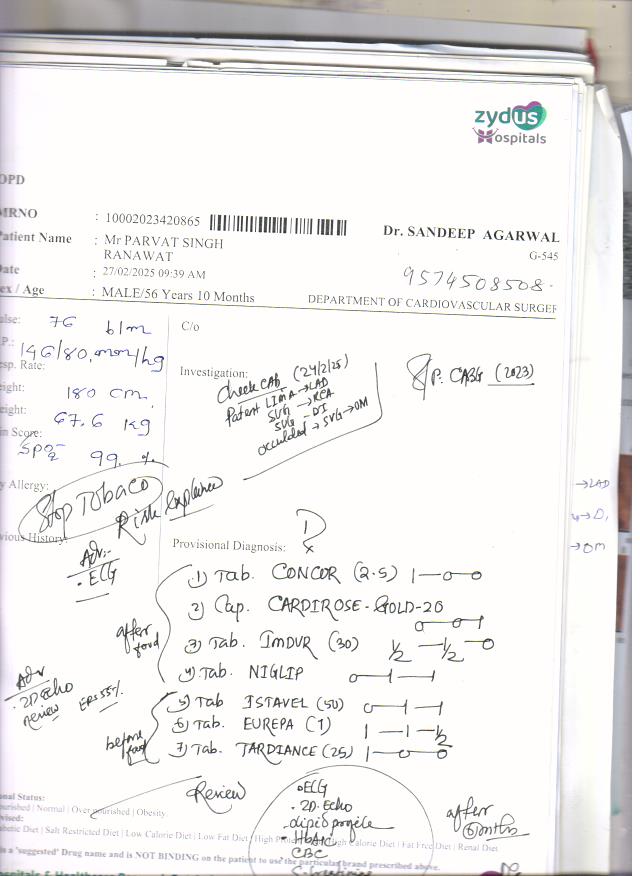 zydus
Hospitals
OPD
MRNO : 10002023420865
Dr. SANDEEP AGARWAL
G-545
atient Name : Mr PARVAT SINGH
RANAWAT
Date : 27/02/2025 09:39 AM
9574508508.
ex / Age : MALE/56 Years 10 Months
DEPARTMENT OF CARDIOVASCULAR SURGER
ulse: 76 b/m
C/o
P.: 146/80 mm/hg
esp. Rate:
Investigation:
Check CAG (24/2/25)
Patent LIMA → LAD
SVG → RCA
SVG - D1
occluded → SVG → OM
S/P. CABG (2023)
eight: 180 cm
eight: 67.6 kg
in Score:
SPO2 99 %
y Allergy:
Stop TOBACO
Risk explained
→ LAD
→ D1
→ OM
vious History:
Adv:-
. ECG
Provisional Diagnosis:
after food
1) Tab. CONCOR (2.5) 1—0—0
2) Cap. CARDIROSE-GOLD-20
0—0—1
3) Tab. IMDUR (30) 1/2—1/2—0
4) Tab. NIGLIP 0—1—1
Adv
. 2D Echo
review
before food
5) Tab ISTAVEL (50) 0—1—1
6) Tab. EUREPA (1) 1—1—1/2
7) Tab. TARDIANCE (25) 1—0—0
Review
• ECG
• 2D. Echo
. lipid profile
• HbA1C
CBC
S. Creatinine
after
6 months
onal Status:
ourished | Normal | Over nourished | Obesity
vised:
abetic Diet | Salt Restricted Diet | Low Calorie Diet | Low Fat Diet | High Calorie Diet | Fat Free Diet | Renal Diet
is a 'suggested' Drug name and is NOT BINDING on the patient to use the particular brand prescribed above.